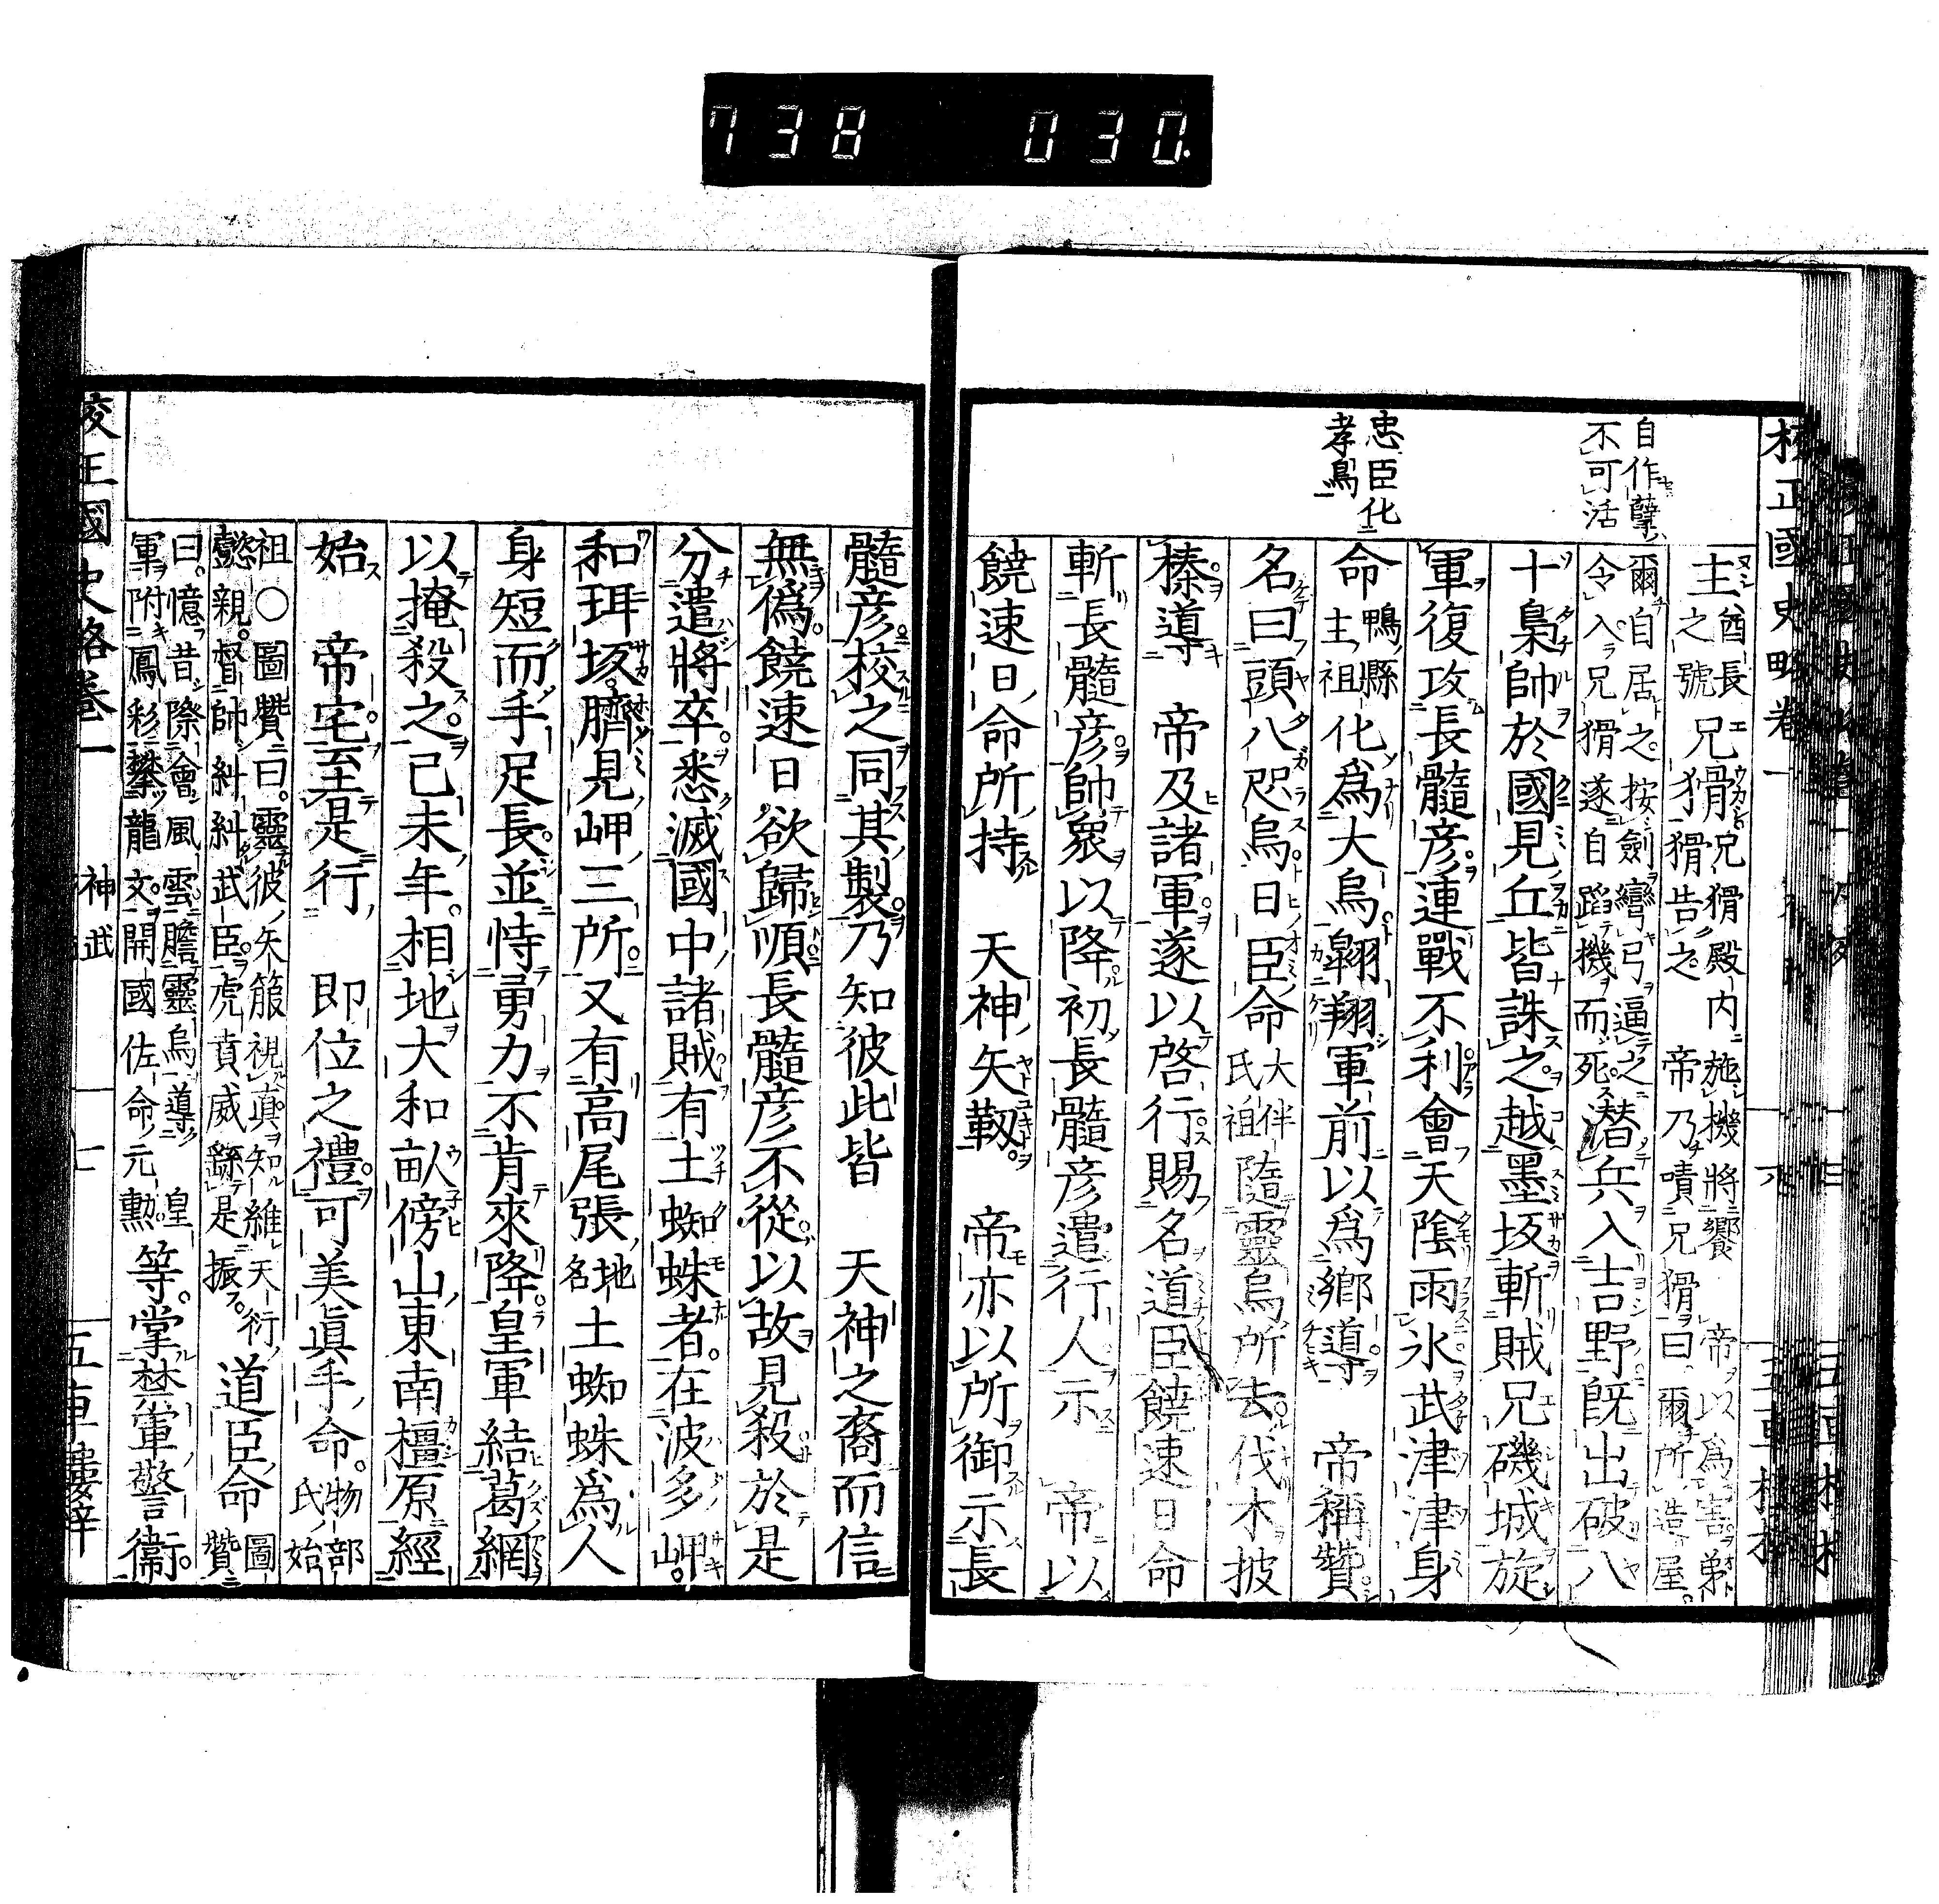 738 030
校正國史略卷一
自作孽
不可活
忠臣化
孝鳥
主酋長之號兄猾兄猾殿内施機將饗 帝以爲害弟猾告之 帝乃嘖兄猾曰爾所造屋
爾自居之按劍彎弓逼之令入兄猾遂自蹈機而死潜兵入吉野既出破八
十梟帥於國見丘皆誅之越墨坂斬賊兄磯城旋
軍復攻長髓彦連戰不利會天陰雨氷武津津身
命鴨縣主祖化爲大烏翶翔軍前以爲鄕導 帝稱贊
名曰頭八咫烏日臣命大伴氏祖隨靈烏所去伐木披
榛導 帝及諸軍遂以啓行賜名道臣饒速日命
斬長髓彦帥衆以降初長髓彦遣行人示 帝以
饒速日命所持 天神矢靫 帝亦以所御示長
髓彦校之同其製乃知彼此皆 天神之裔而信
無僞饒速日欲歸順長髓彦不從以故見殺於是
分遣將卒悉滅國中諸賊有土蜘蛛者在波多岬
和珥坂臍見岬三所又有高尾張地名土蜘蛛爲人
身短而手足長並恃勇力不肯來降皇軍結葛網
以掩殺之己未年相地大和畝傍山東南橿原經
始 帝宅至是行 即位之禮可美眞手命物部氏始
祖○圖贊曰靈彼矢箙視眞知維天行懿親督帥糾糾武臣虎賁威繇是振道臣命圖贊
曰憶昔際會風雲膽靈烏導 皇軍附鳳彩攀龍文開國佐命元勲等掌禁軍警衞
校正國史略卷一 神武 七 五車樓梓